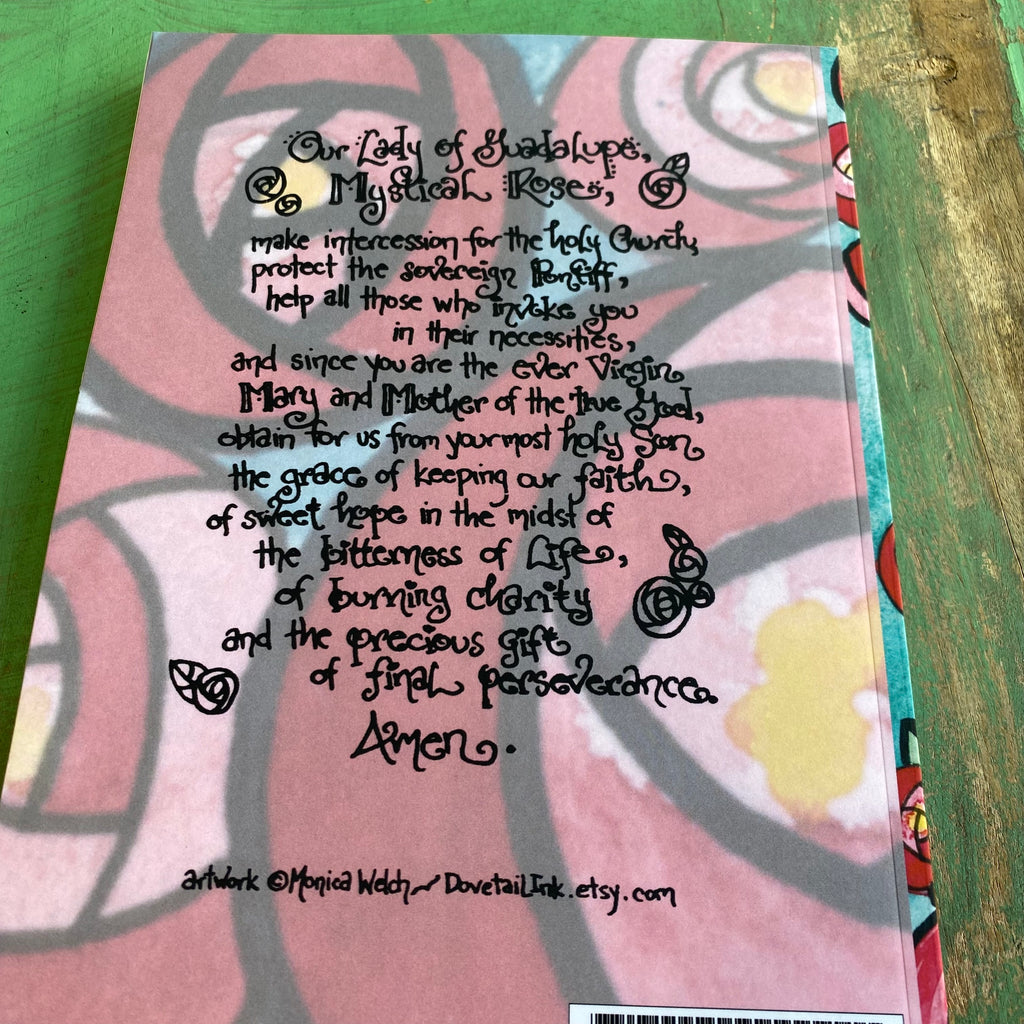 Our Lady of Guadalupe,
Mystical Rose,
make intercession for the holy Church,
protect the sovereign Pontiff,
help all those who invoke you
in their necessities,
and since you are the ever Virgin
Mary and Mother of the True God,
obtain for us from your most holy Son
the grace of keeping our faith,
of sweet hope in the midst of
the bitterness of Life,
of burning charity
and the precious gift
of final perseverance.
Amen.
artwork ©Monica Welch~DovetailInk.etsy.com